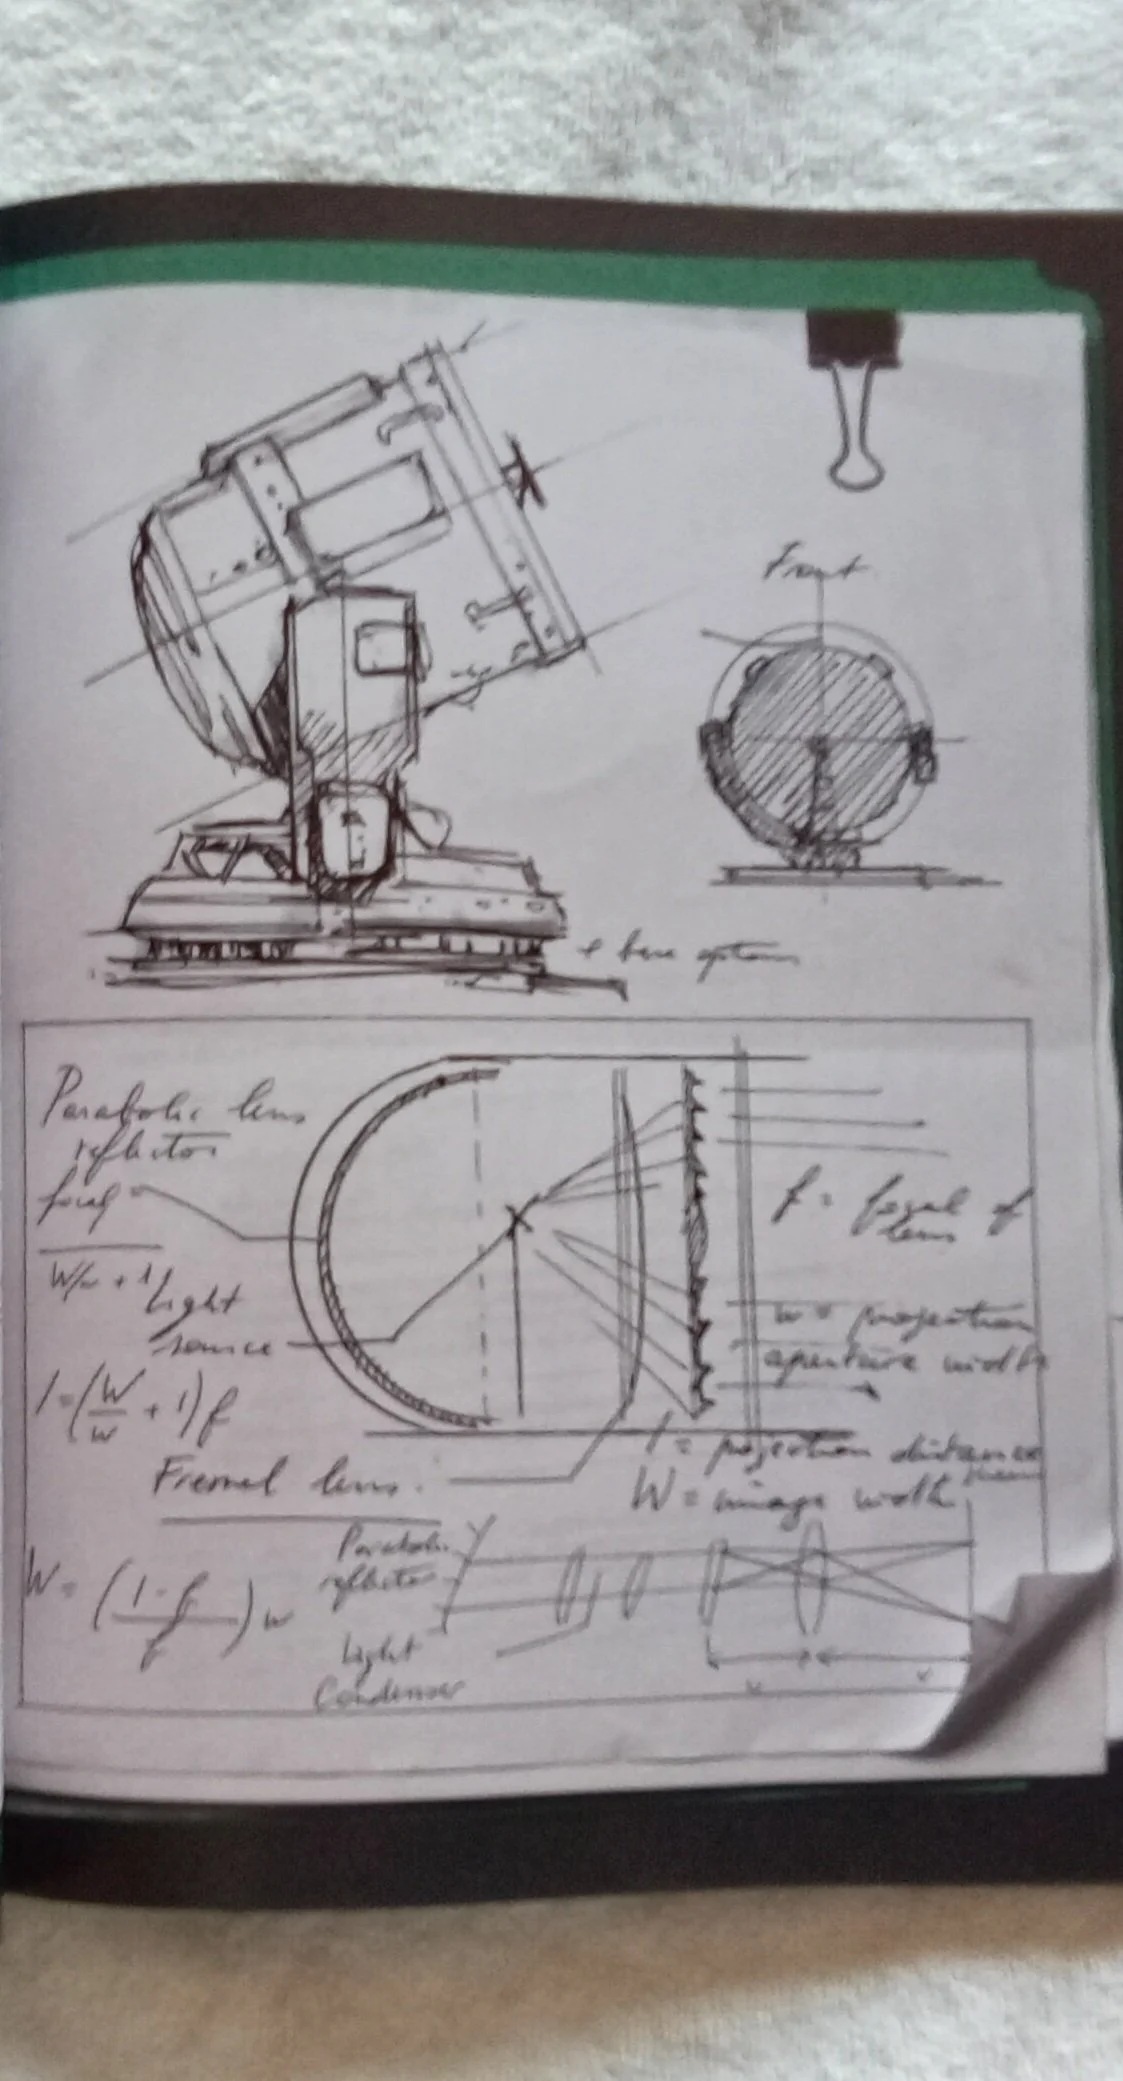 Front
+ base options
Parabolic lens
reflector
focal
W/w + 1
Light
source
l = (W/w + 1) f
Fresnel lens.
W = (l - f / f) w
f = focal of
lens
w = projection
aperture width
l = projection distance
W = image width
Parabolic
reflector
Light
Condenser